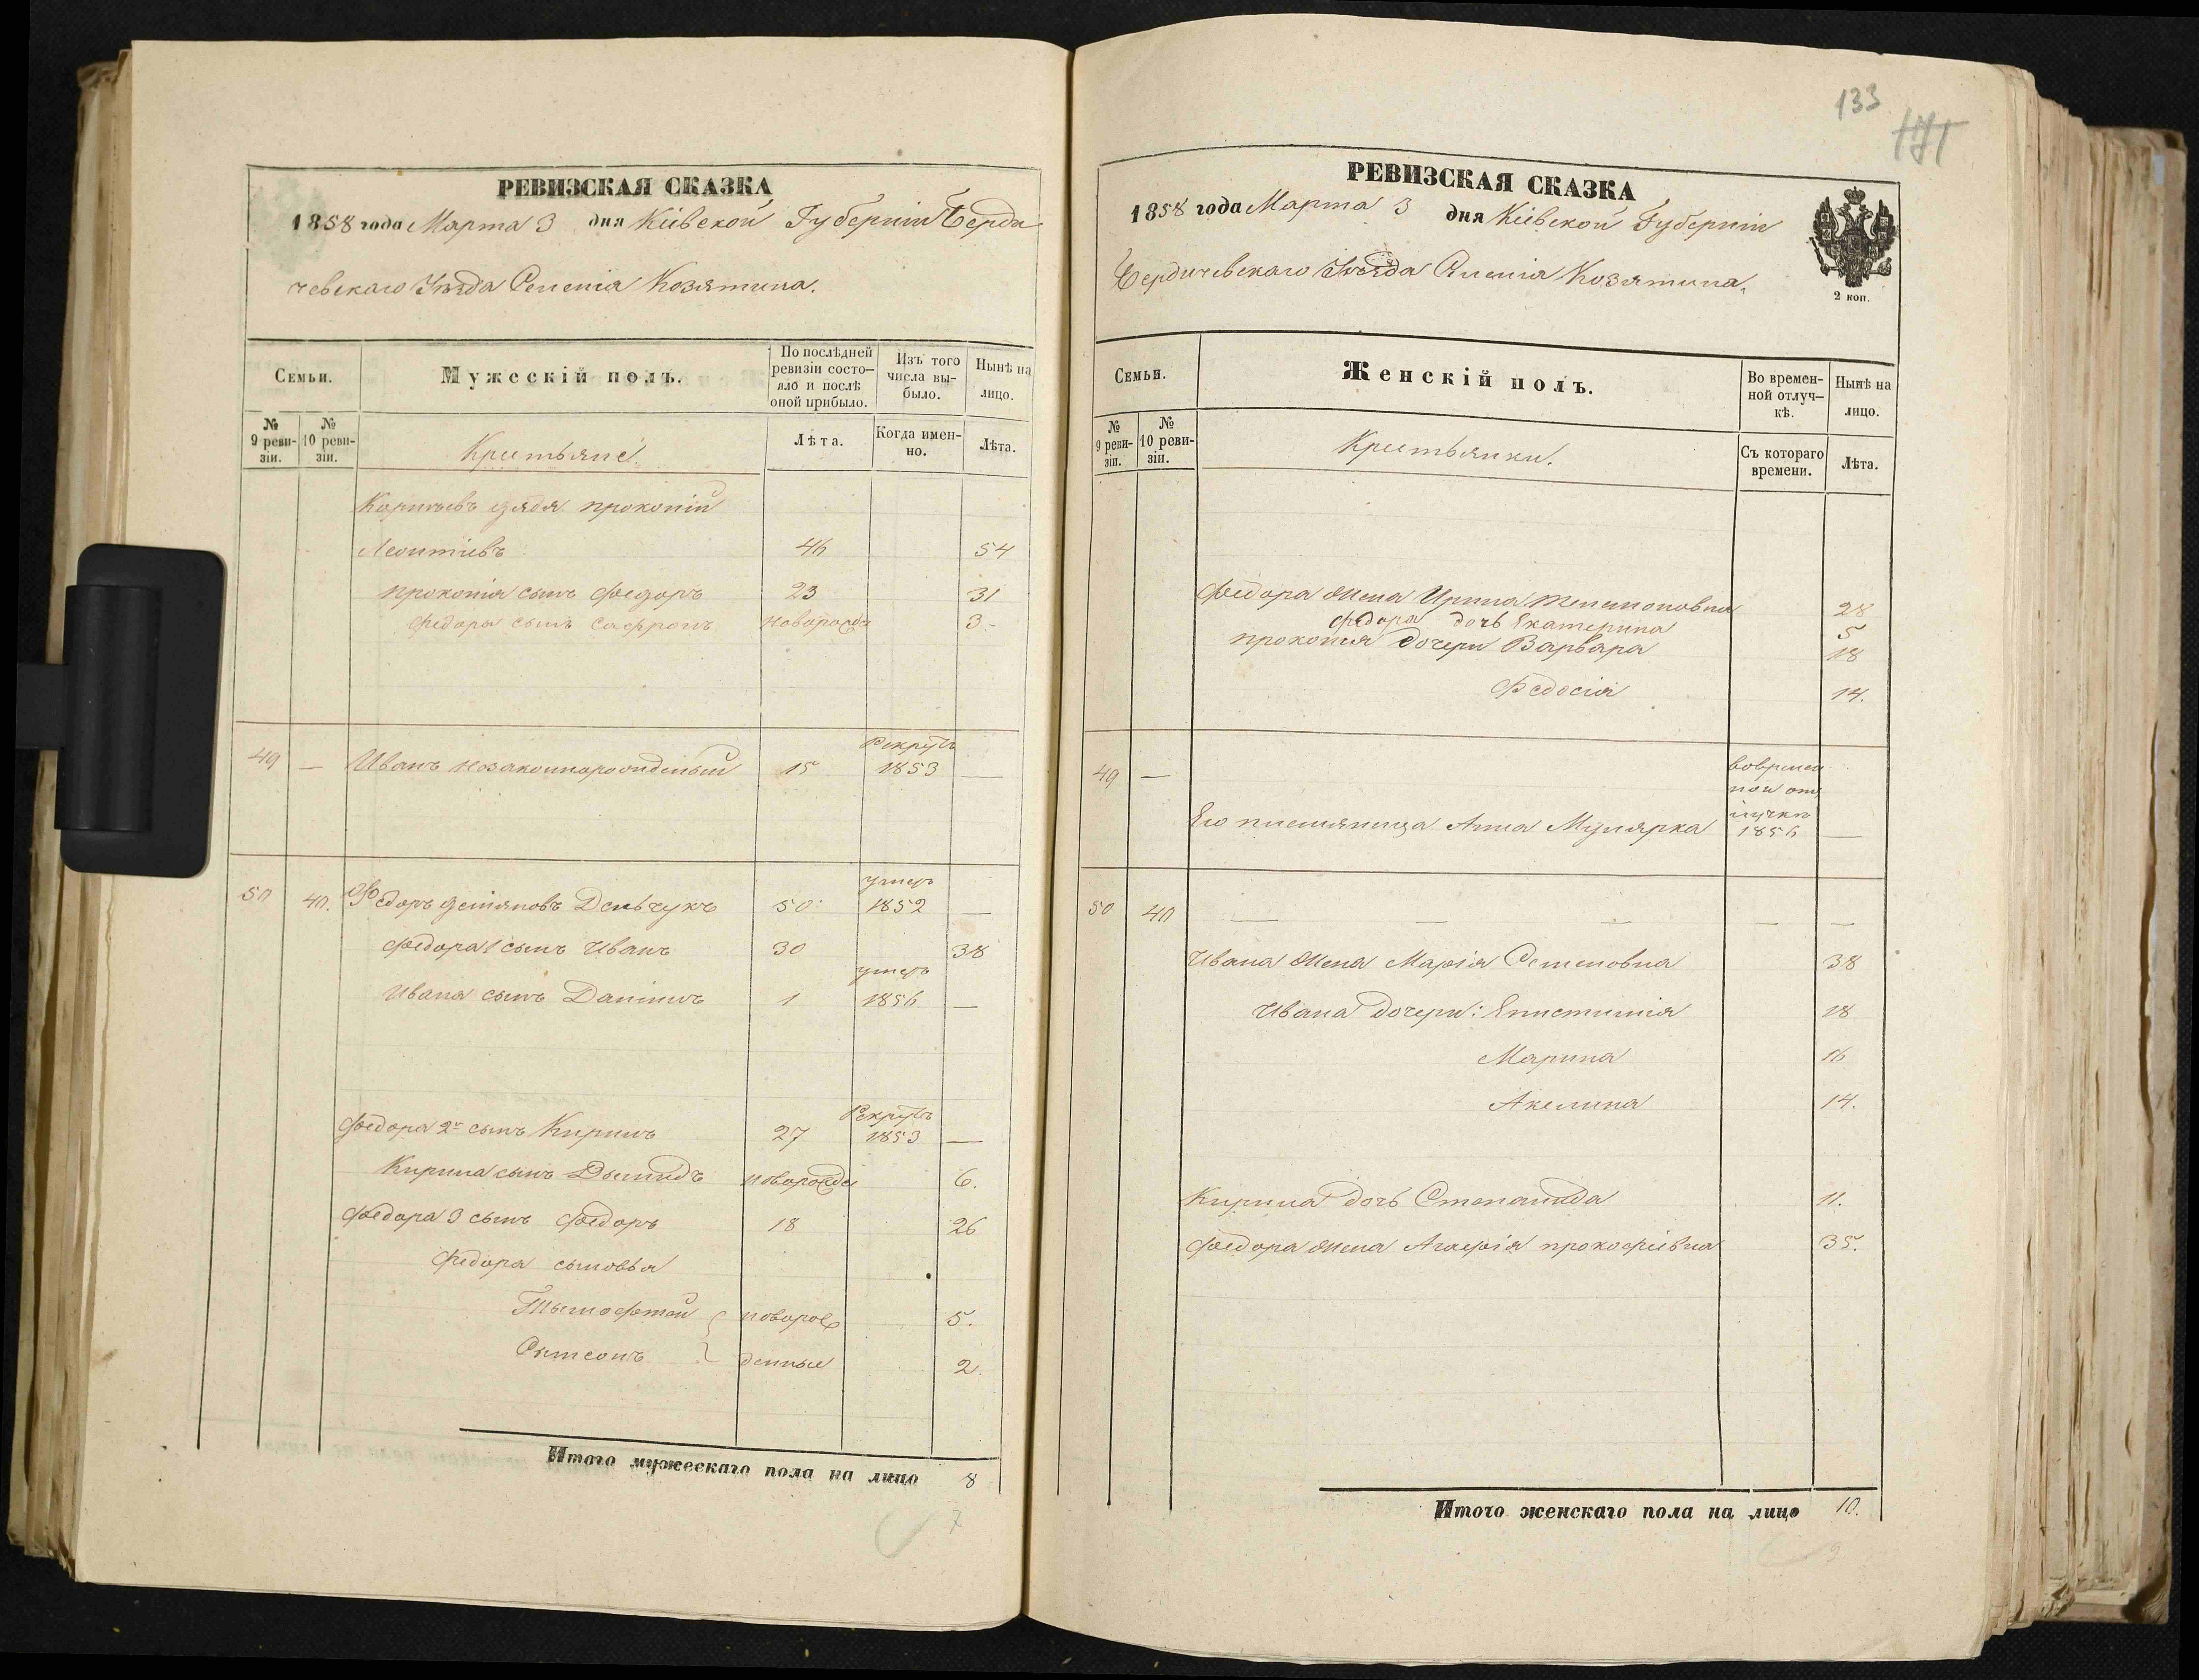 РЕВИЗСКАЯ СКАЗКА
1858 года Марта 3 дня Кіевской Губерніи Берди
чевскаго Уѣзда Селенія Козятина.
Семьи.
Мужескій полъ.
По послѣдней ревизіи состо-
яло и послѣ
оной прибыло.
Изъ того
числа вы-
было.
Нынѣ на
лицо.
№
9 реви-
зіи.
№
10 реви-
зіи.
Крестьяне
Лѣта.
Когда имен-
но.
Лѣта.
дядя Прокопій
Леонтіевъ 46 54
Прокопія сынъ Федоръ 23 31
Федора сынъ Сафронъ новорожд 3.
Рекрутъ
49 — Иванъ незаконнорожденный 15 1853 —
умеръ
50 40. Федоръ Деньчукъ 50 1852 —
Федора 1 сынъ Иванъ 30 38
умеръ
Ивана сынъ Данилъ 1 1856 —
Рекрутъ
Федора 2й сынъ Кирилъ 27 1853 —
Кирила сынъ Дымидъ новорожде 6.
Федора 3 сынъ Федоръ 18 26
Федора сыновья
Тымофтей новорож 5.
денные 2.
Итого мужескаго пола на лицо 8
7
133
171
РЕВИЗСКАЯ СКАЗКА
1858 года Марта 3 дня Кіевской Губерніи
Бердичевскаго Уѣзда Селенія Козятина.
2 коп.
Семьи.
Женскій полъ.
Во времен-
ной отлуч-
кѣ.
Нынѣ на
лицо.
№
9 реви-
зіи.
№
10 реви-
зіи.
Крестьянки.
Съ котораго
времени.
Лѣта.
Федора жена Ирина 28
Федора дочь Екатерина 5
Прокопія дочери Варвара 18
Федосія 14.
вовремен
ной от
49 —
лучкѣ
Его племяница Анна Мулярка 1856 —
50 40 — — — — —
Ивана жена Марія Семеновна 38
Ивана дочери: Епистимія 18
Марина 16
Акелина 14.
Кирила дочь Степанида 11.
Федора жена Агафія Прокофіевна 35.
Итого женскаго пола на лицо 10.
9